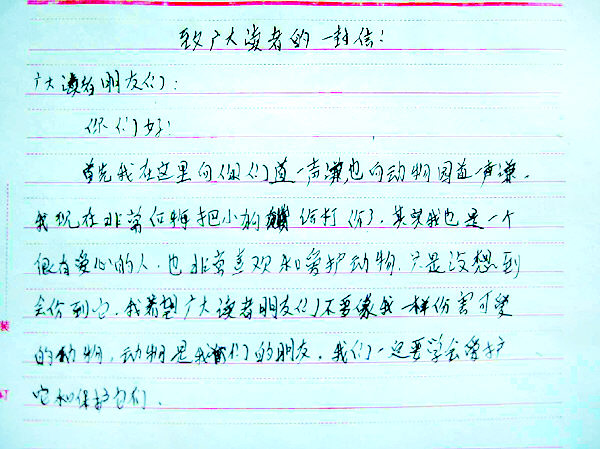 致广大读者的一封信!
广大读者朋友们:
你们好!
首先我在这里向你们道一声谦,也向动物园道一声谦.
我现在非常后悔把小的给打伤了.其实我也是一个
很有爱心的人,也非常喜欢和爱护动物,只是没想到
会伤到它.我希望广大读者朋友们不要像我一样伤害可爱
的动物,动物是我们的朋友.我们一定要学会爱护
它和保护它们.